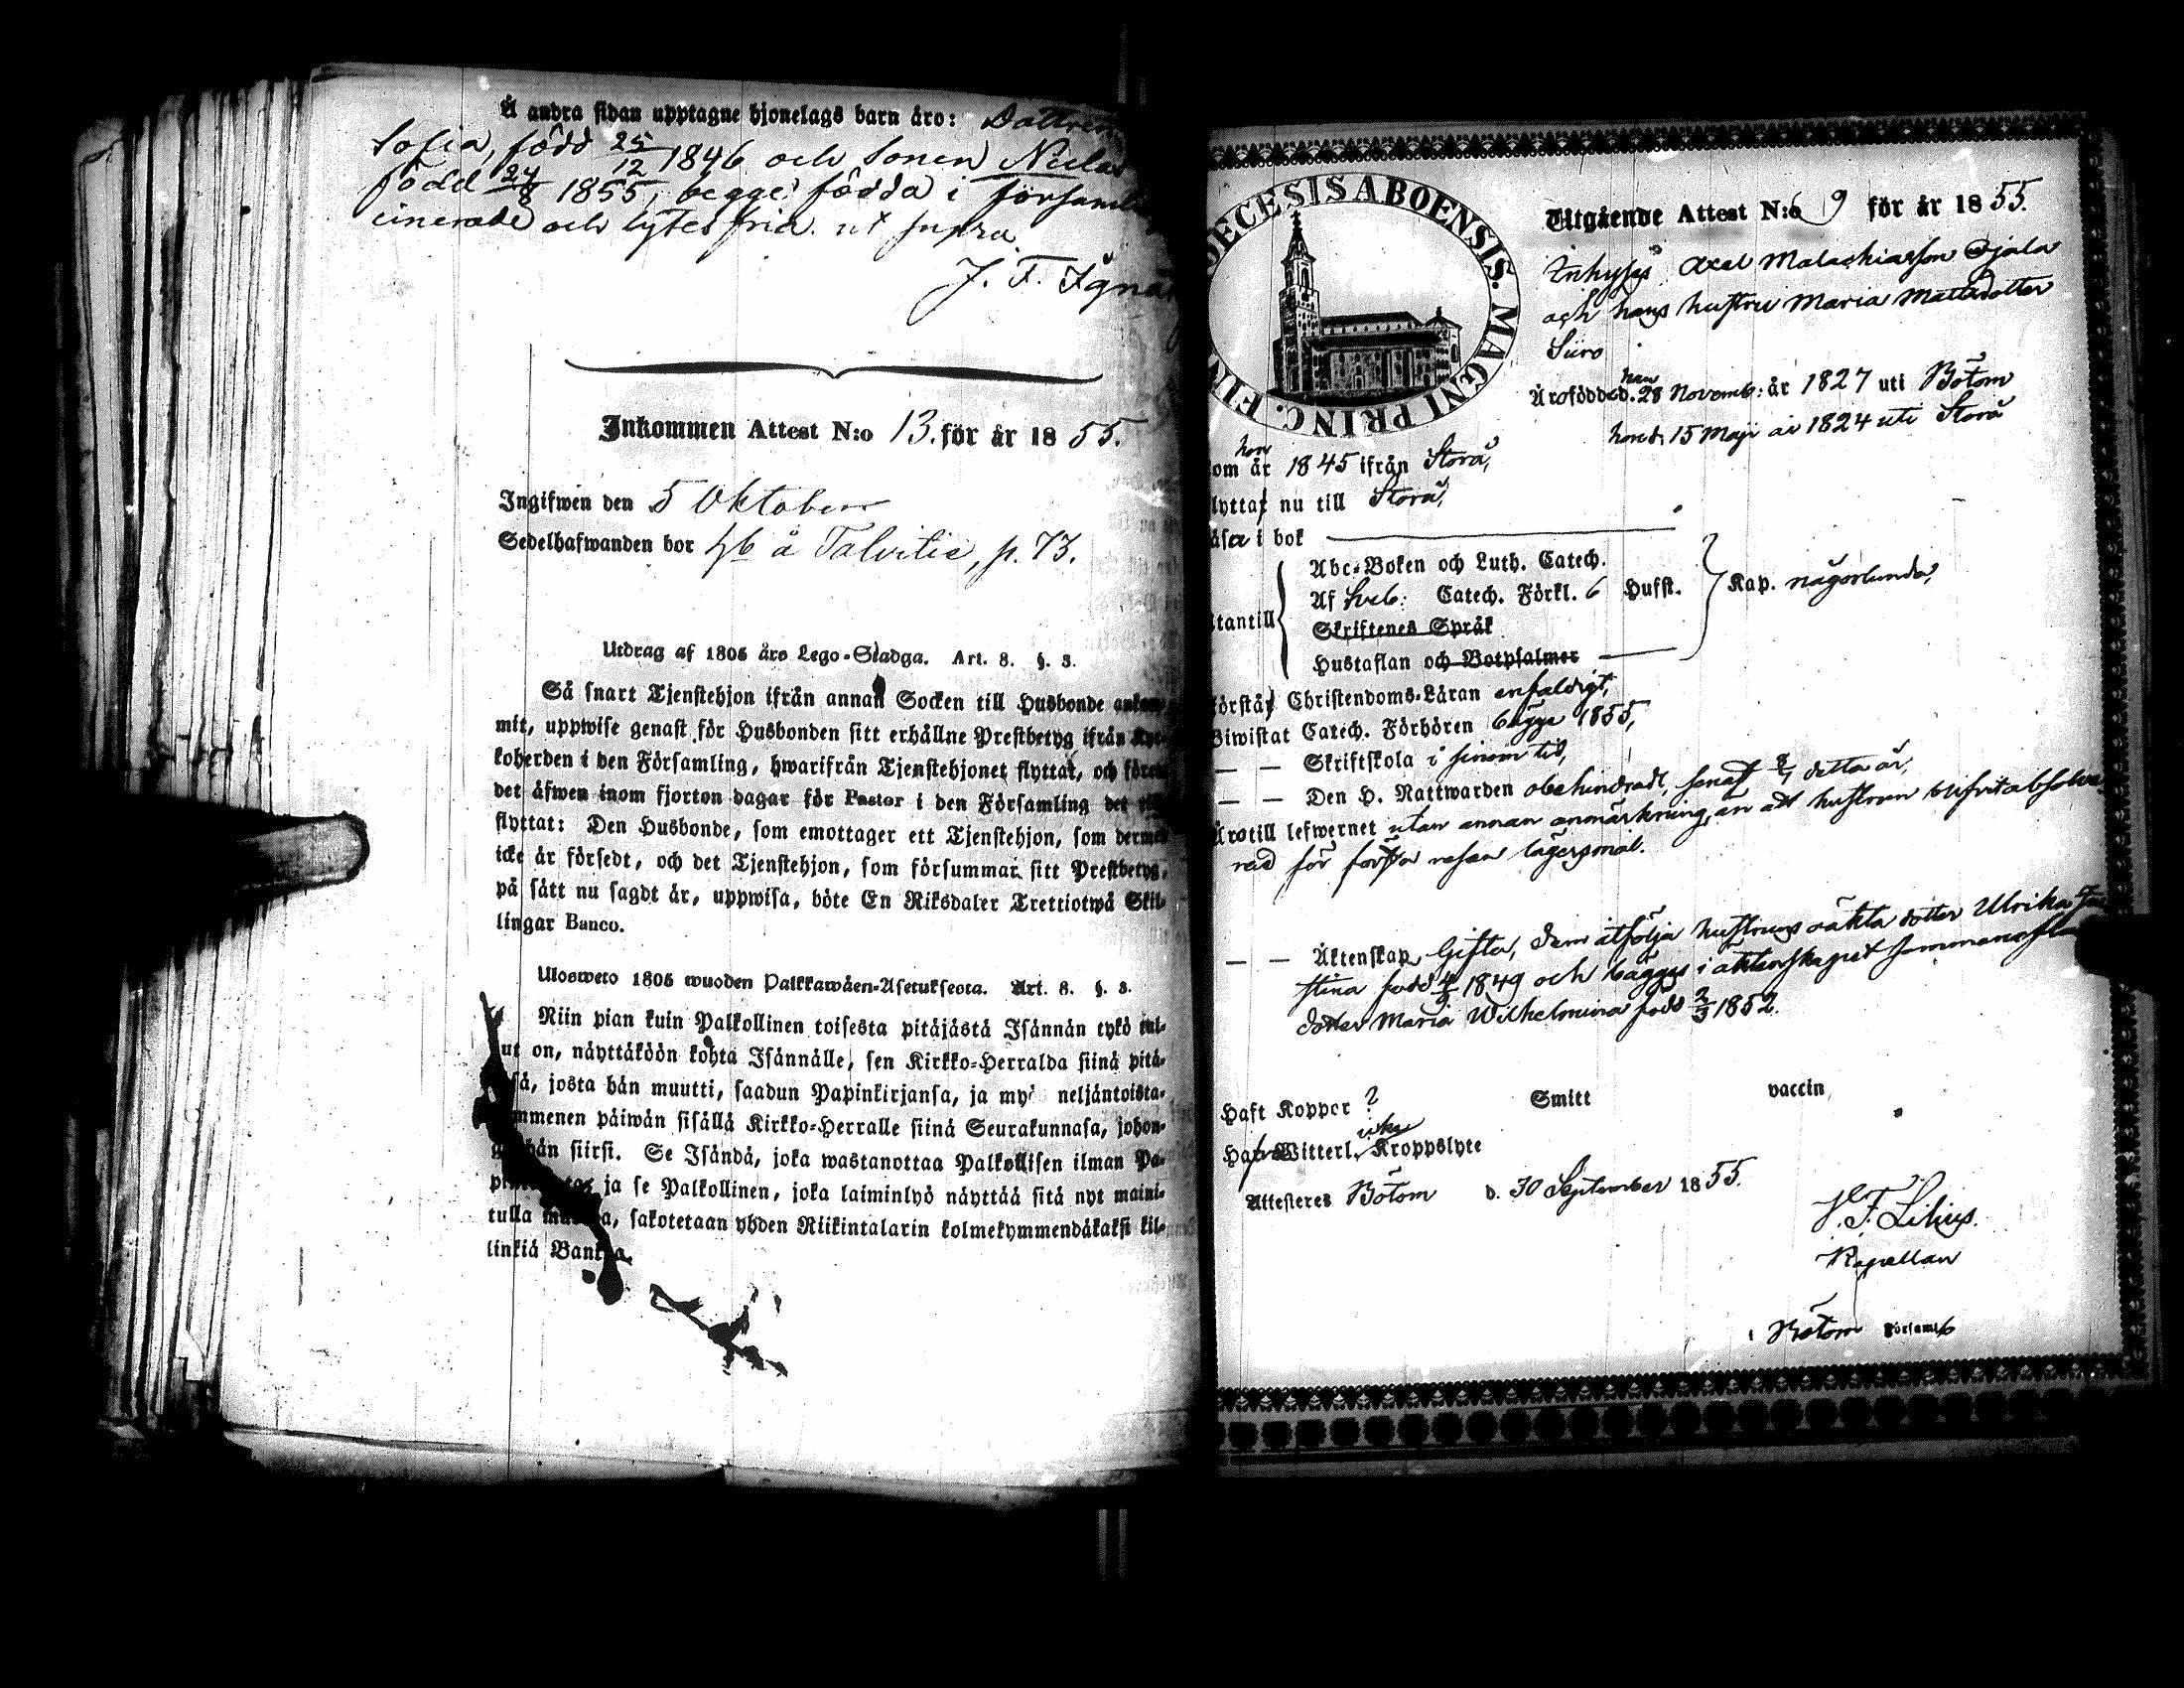 Å andra sidan upptagne hjonelags barn äro: Dottren
Sofia, född 25/12 1846 och Sonen
född 24/8 1855, begge födda i församli
cinerade och lytesfria. ut supra.
J. F.
Inkommen Attest N:o 13. för år 1855.
Ingifwen den 5 Oktober
Sedelhafwanden bor å Talvitie, p. 73.
Utdrag af 1805 års Lego-Stadga. Art. 8. §. 3.
Så snart Tjenstehjon ifrån annan Socken till Husbonde ankom-
mit, uppwise genast för Husbonden sitt erhållne Prestbetyg ifrån Kyr-
koherden i den Församling, hwarifrån Tjenstehjonet flyttat, och förete
det äfwen inom fjorton dagar för Pastor i den Församling det till
flyttat: Den Husbonde, som emottager ett Tjenstehjon, som dermed
icke är försedt, och det Tjenstehjon, som försummar sitt Prestbetyg,
på sätt nu sagdt är, uppwisa, böte En Riksdaler Trettiotwå Skil-
lingar Banco.
Ulosweto 1805 wuoden Palkkawäen-Asetuksesta. Art. 8. §. 3.
Niin pian kuin Palkollinen toisesta pitäjästä Isännän tykö tul-
ut on, näyttäköön kohta Isännälle, sen Kirkko-Herralda siinä pitä-
sä, josta hän muutti, saadun Papinkirjansa, ja my neljäntoista-
mmenen päiwän sisällä Kirkko-Herralle siinä Seurakunnasa, johon-
hän siirsi. Se Isändä, joka wastanottaa Palkollisen ilman Pa-
ja se Palkollinen, joka laiminlyö näyttää sitä nyt maini-
tulla, sakotetaan yhden Riikintalarin kolmekymmendäkaksi kil-
linkiä Bankoa.
OECESIS ABOENSIS. MAGNI PRINC. FIN
Utgående Attest N:o 9 för år 1855.
Inhyses Axel Malachiasson Ojala
och hans hustru Maria Mattsdotter
Siiro
Äro födde han d. 28 Novemb: år 1827 uti Bötom
hon d. 15 Maji år 1824 uti Storå
kom hon år 1845 ifrån Storå,
flytta nu till Storå,
läsa i bok
Utantill Abc-Boken och Luth. Catech.
Af Sveb: Catech. Förkl. 6 Hufst. Kap. någorlunda,
Skriftenes Språk
Hustaflan och Botpsalmer
förstå Christendoms-Läran enfaldigt,
Biwistat Catech. Förhören bägge 1855,
— — Skriftskola i sinom tid,
— — Den H. Nattwarden obehindradt, senast 8/7 detta år,
Äro till lefwernet utan annan anmärkning, än att hustrun blifvit absolve-
rad för första resan lägersmål.
— — Äktenskap Gifta, dem åtfölja hustruns oäkta dotter Ulrika
stina född 1849 och bägges i äktenskapet sammanaflade
dotter Maria Wilhelmina född 2/3 1852.
Haft Koppor ? Smitt vaccin
Hafva Witterl. icke Kroppslyte
Attesteres Bötom d. 30 September 1855.
J. F. Lilius.
Kapellan
i Bötom Församl.